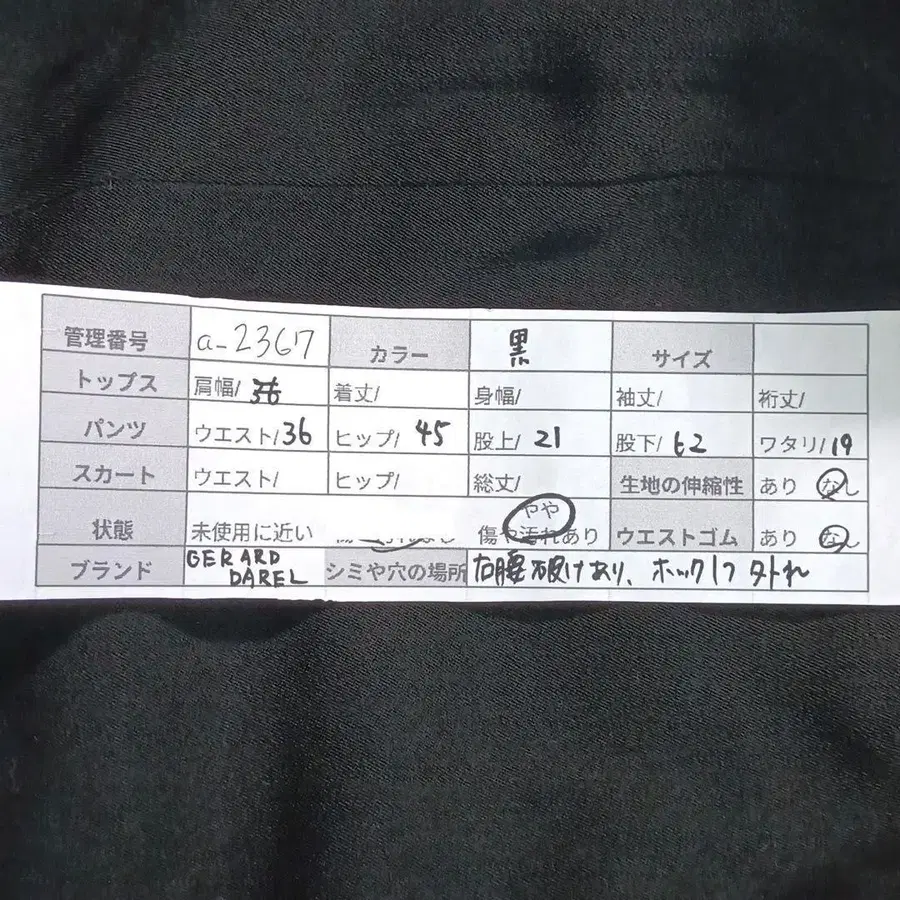 管理番号 a-2367 カラー 黒 サイズ
トップス 肩幅/ 着丈/ 身幅/ 袖丈/ 裄丈/
パンツ ウエスト/36 ヒップ/ 45 股上/ 21 股下/ 62 ワタリ/19
スカート ウエスト/ ヒップ/ 総丈/ 生地の伸縮性 あり なし
やや
状態 未使用に近い 傷や汚れあり ウエストゴム あり なし
ブランド GERARD DAREL シミや穴の場所 右腰 破けあり、ホック1つ外れ